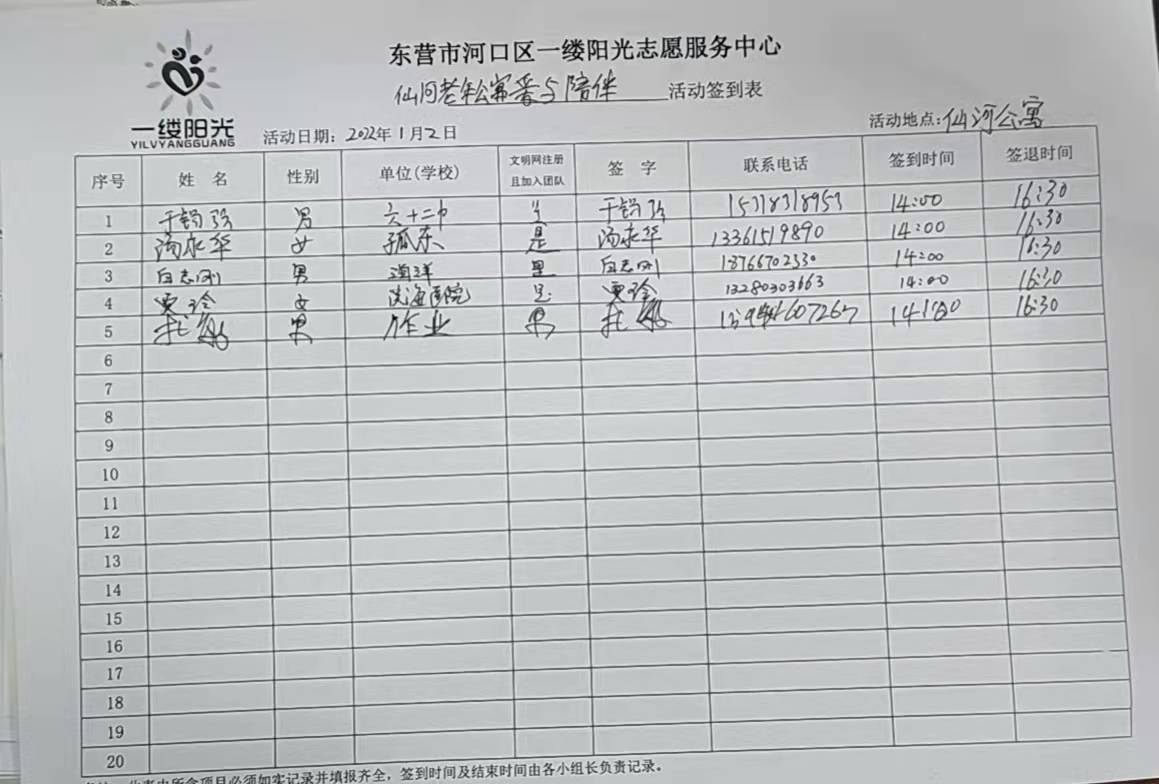 东营市河口区一缕阳光志愿服务中心
仙河老年公寓 与陪伴 活动签到表
一缕阳光
YILVYANGGUANG
活动日期: 2022年1月2日
活动地点:仙河公寓
序号 姓 名 性别 单位(学校) 文明网注册且加入团队 签 字 联系电话 签到时间 签退时间
1 男 六十二中 是 15318318953 14:00 16:30
2 汤永华 女 孤东 是 汤永华 13361519890 14:00 16:30
3 白志刚 男 海洋 是 白志刚 18766702330 14:00 16:30
4 贾玲 女 滨海医院 是 贾玲 13280303663 14:00 16:30
5 男 作业 14:00 16:30
6
7
8
9
10
11
12
13
14
15
16
17
18
19
20
所含项目必须如实记录并填报齐全，签到时间及结束时间由各小组长负责记录。